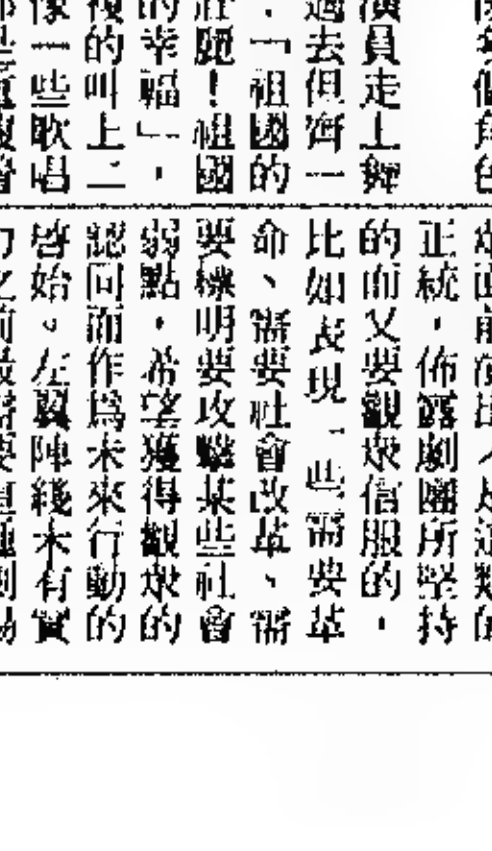 演員走上舞
過去但齊一
．「祖國的
壯麗！祖國
的幸福」，
複的叫上二
像一些歌唱
正統，佈露劇團所堅持
的而又要觀眾信服的，
比如表現一些需要革
命、需要社會改革、需
要機明要攻擊某些社會
弱點，希望獲得觀眾的
認同而作爲未來行動的
啓始。左翼陣綫未有實